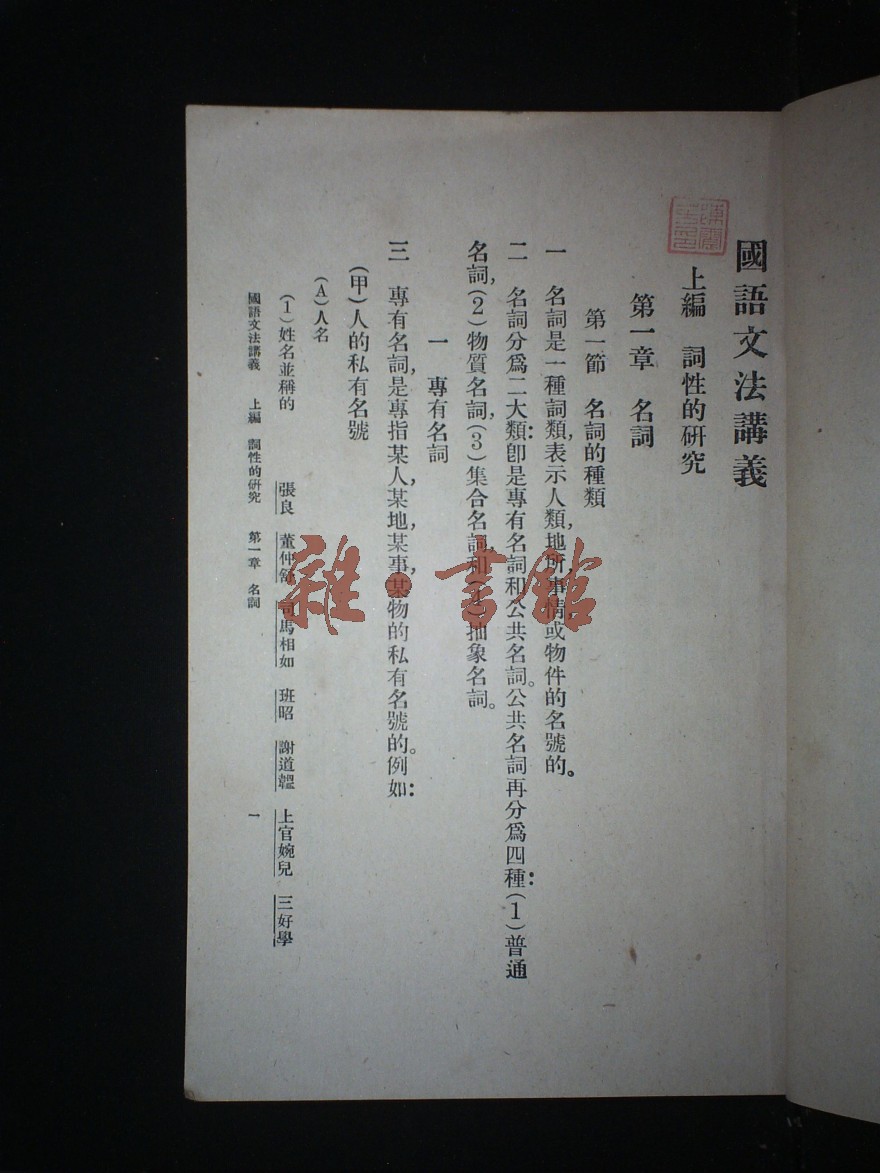 國語文法講義
上編　詞性的研究
第一章　名詞
第一節　名詞的種類
一　名詞是一種詞類,表示人類,地所,事情,或物件的名號的。
二　名詞分爲二大類:卽是專有名詞和公共名詞。公共名詞再分爲四種:(1)普通
名詞,(2)物質名詞,(3)集合名詞,和(4)抽象名詞。
一　專有名詞
三　專有名詞,是專指某人,某地,某事,某物的私有名號的。例如:
(甲)人的私有名號
(A)人名
(1)姓名並稱的　張良　董仲舒　司馬相如　班昭　謝道韞　上官婉兒　三好學
國語文法講義　上編　詞性的研究　第一章　名詞　一
雜·書館